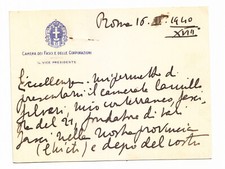 Roma 16. 1940
XVIII
CAMERA DEI FASCI E DELLE CORPORAZIONI
IL VICE PRESIDENTE
Eccellenza, mi permetto di
presentarvi il camerata Camillo
mio conterraneo, fasci
sta del 21, fondatore di vari
Fasci nella nostra provincia
(Chieti) e depo del vostro